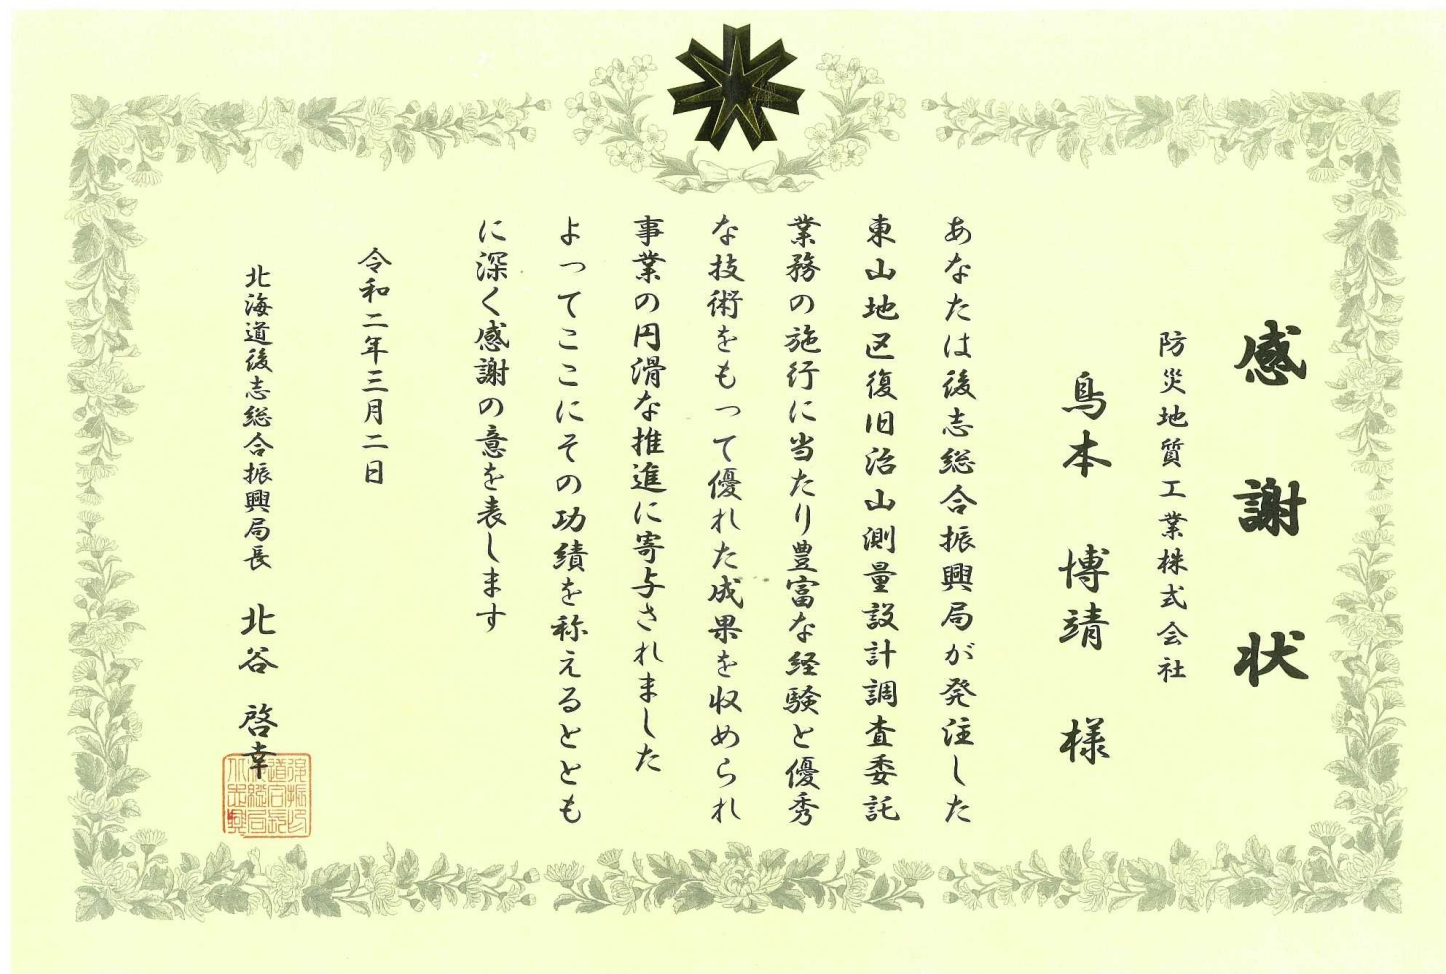 感謝状
防災地質工業株式会社
鳥本 博靖 様
あなたは後志総合振興局が発注した
東山地区復旧治山測量設計調査委託
業務の施行に当たり豊富な経験と優秀
な技術をもって優れた成果を収められ
事業の円滑な推進に寄与されました
よってここにその功績を称えるととも
に深く感謝の意を表します
令和二年三月二日
北海道後志総合振興局長 北谷 啓幸